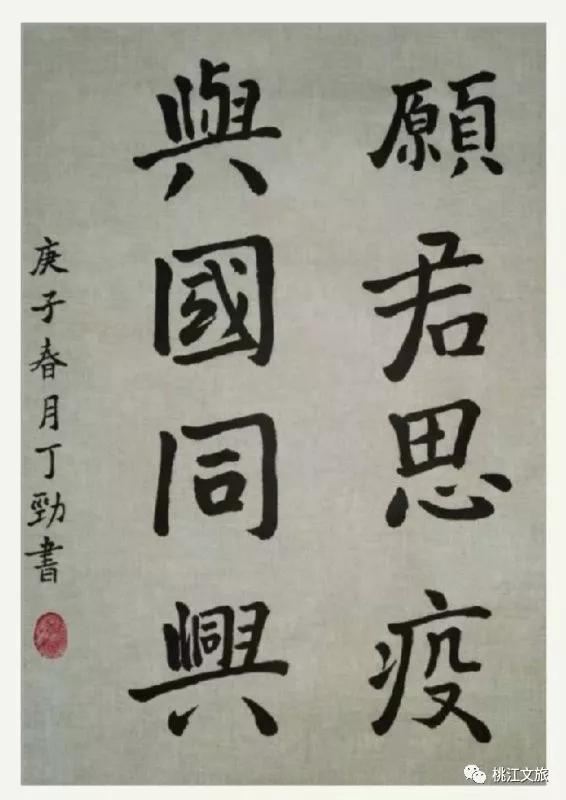 願君思疫
與國同興
庚子春月丁勁書
桃江文旅